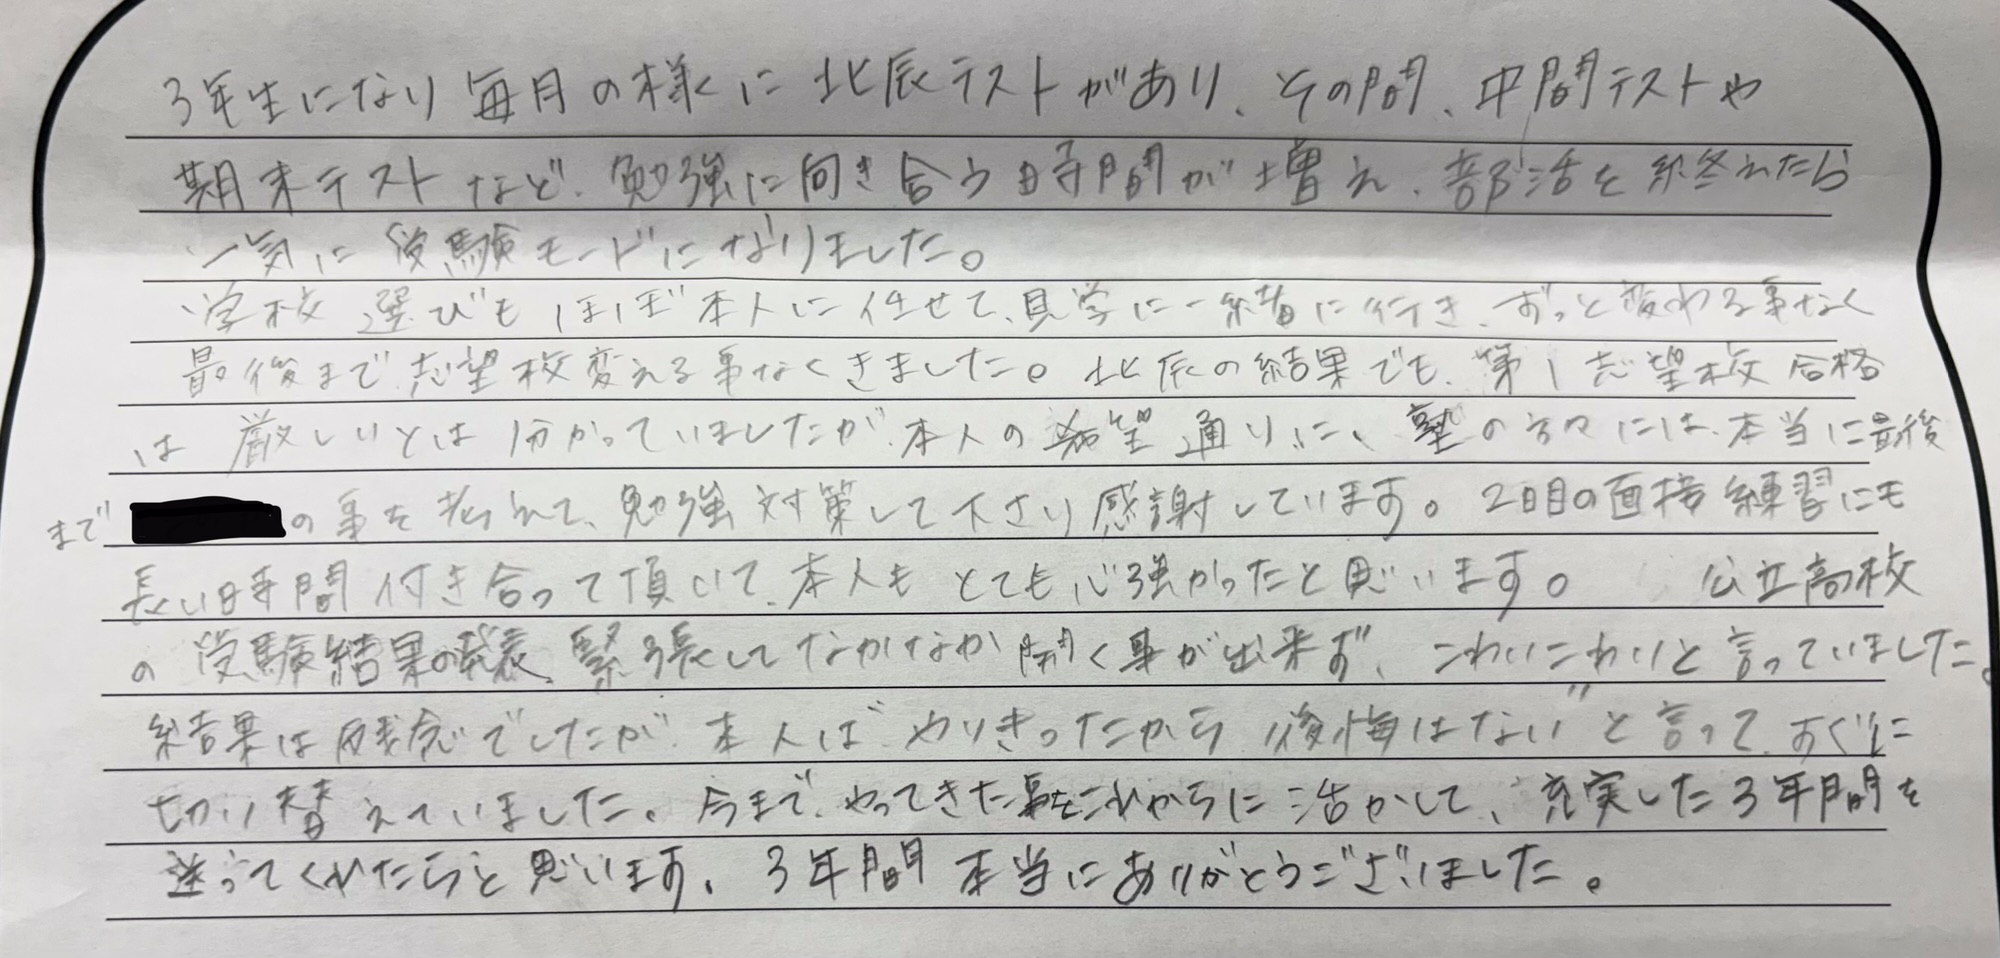 3年生になり毎月の様に北辰テストがあり、その間、中間テストや
期末テストなど、勉強に向き合う時間が増え、部活を終えたら
一気に受験モードになりました。
学校選びもほぼ本人に任せて、見学に一緒に行き、ずっと変わる事なく
最後まで志望校変える事なくきました。北辰の結果でも、第1志望校合格
は厳しいとは分かっていましたが、本人の希望通りに、塾の方々には、本当に最後
まで の事を考えて、勉強対策して下さり感謝しています。2日目の面接練習にも
長い時間付き合って頂いて、本人もとても心強かったと思います。 公立高校
の受験結果の発表、緊張してなかなか開く事が出来ず、こわいこわいと言っていました。
結果は残念でしたが、本人は"やりきったから後悔はない"と言って、すぐに
切り替えていました。今まで、やってきた事をこれからに活かして、充実した3年間を
送ってくれたらと思います。3年間本当にありがとうございました。